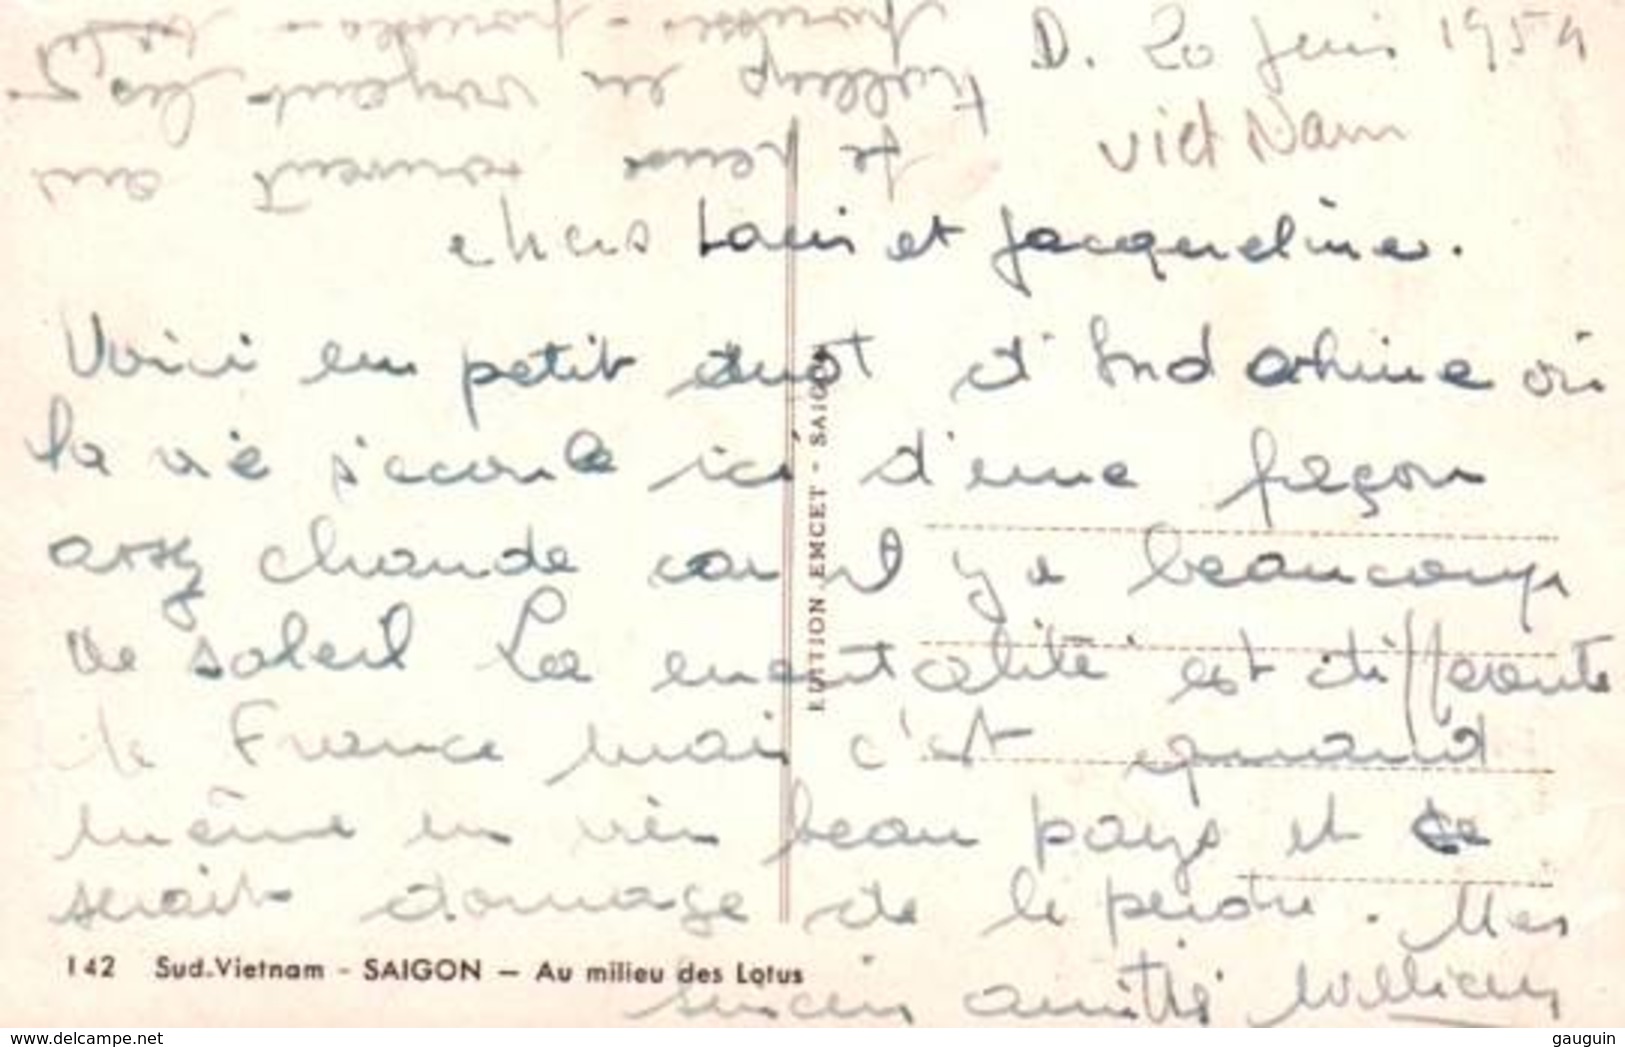 D. 20 Juin 1954
Viet Nam
chers Louis et Jacqueline.
Voici un petit mot d'Indochine où
la vie s'écoule ici d'une façon
assez chaude car il y a beaucoup
de soleil La mentalité est différente
de France mais c'est quand
même un très beau pays et ce
serait domage de le perdre. Mes
sincères amitiés William
Je pense souvent aux
tulleup en voyant les
142 Sud-Vietnam - SAIGON — Au milieu des Lotus
EDITION EMCET - SAIGON
www.delcampe.net
gauguin